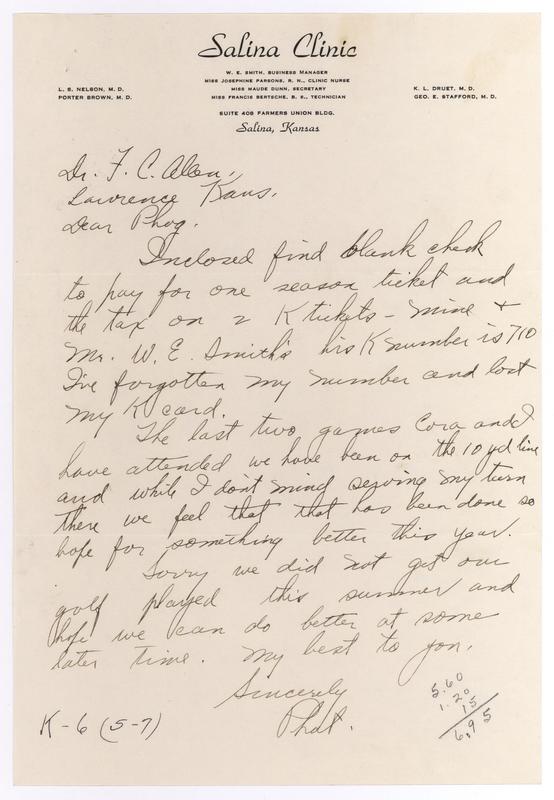 Salina Clinic
W. E. SMITH, BUSINESS MANAGER
MISS JOSEPHINE PARSONS, R. N., CLINIC NURSE
MISS MAUDE DUNN, SECRETARY
MISS FRANCIS BERTSCHE, B. S., TECHNICIAN
L. S. NELSON, M. D.
PORTER BROWN, M. D.
K. L. DRUET, M. D.
GEO. E. STAFFORD, M. D.
SUITE 408 FARMERS UNION BLDG.
Salina, Kansas
Dr. F. C. Allen,
Lawrence Kans.
Dear Phog.
Inclosed find blank check
to pay for one season ticket and
the tax on 2 K tickets - mine +
Mr. W. E. Smith's his K number is 710
I've forgotten my number and lost
my K card.
The last two games Cora and I
have attended we have been on the 10 yd line
and while I don't mind serving my turn
there we feel that that has been done so
hope for something better this year.
Sorry we did not get our
golf played this summer and
hope we can do better at some
later time. My best to you.
Sincerely
Phat.
K-6 (5-7)
5.60
1.20
15
6.95